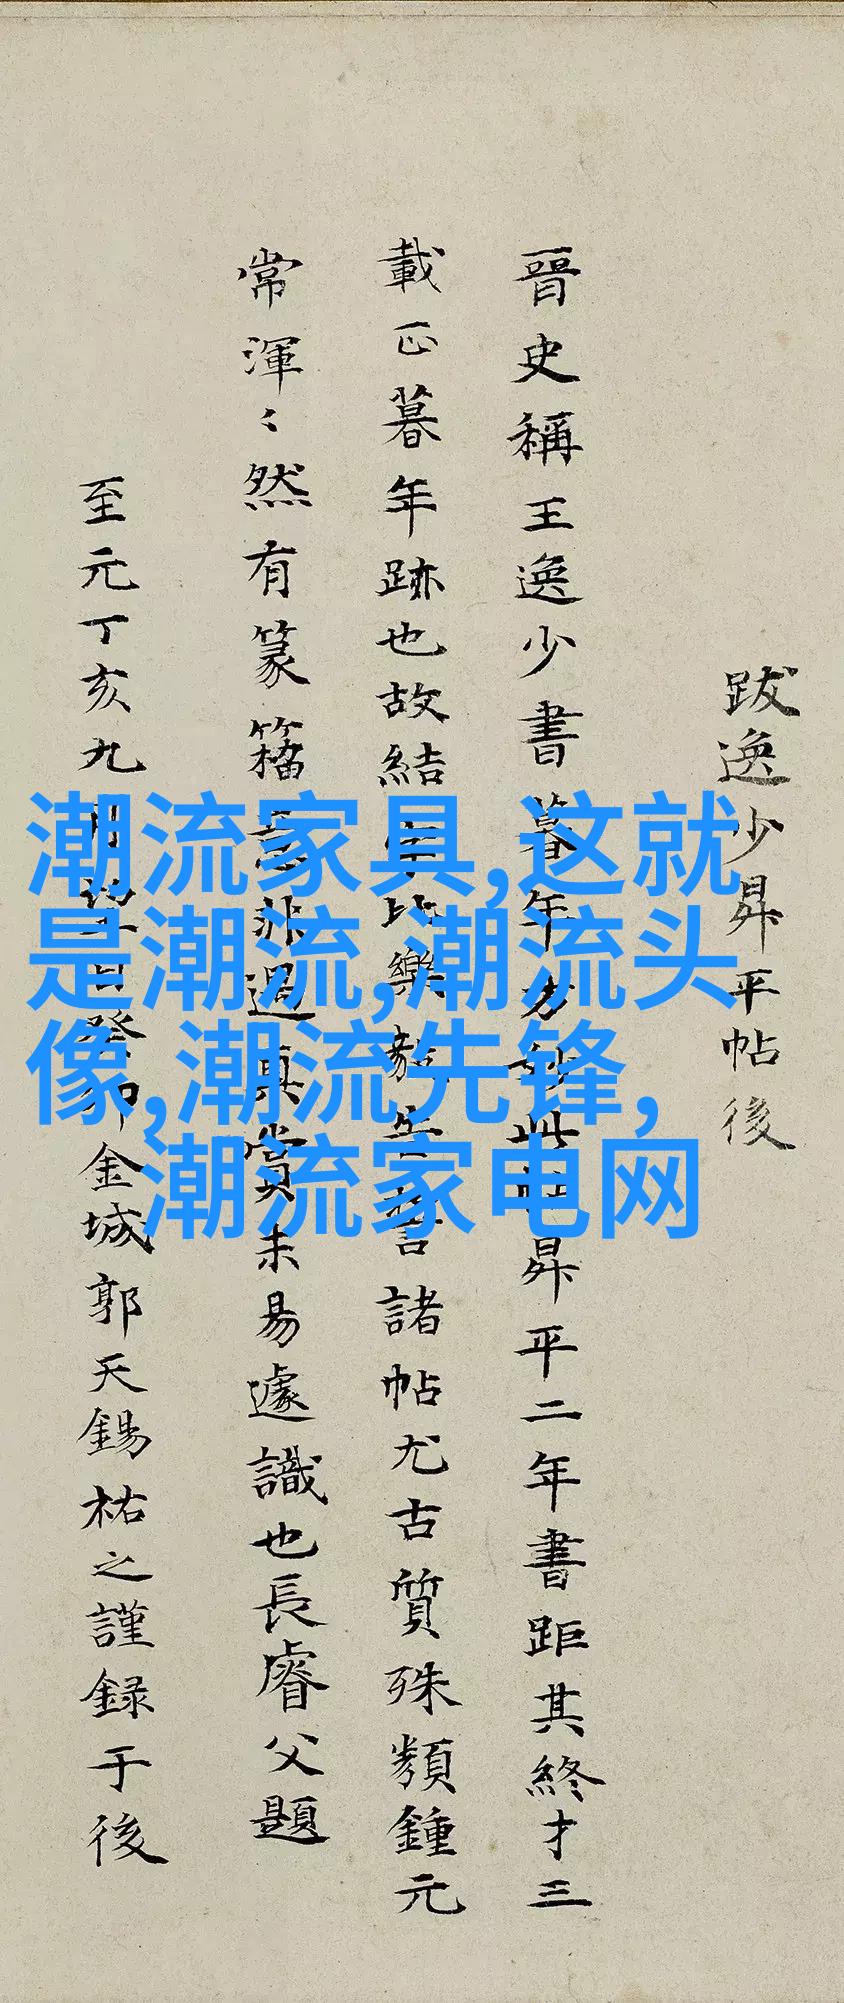 跋逸少昇平帖後
晉史稱王逸少書暮年方妙此昇平二年書距其終才三
載正暮年跡也故結字比樂毅告誓諸帖尤古質殊類鍾元
常渾〻然有篆籀意非遇真賞未易遽識也長睿父題
至元丁亥九月望日癸卯金城郭天錫祐之謹録于後
潮流家具,这就
是潮流,潮流头
像,潮流先锋,
潮流家电网